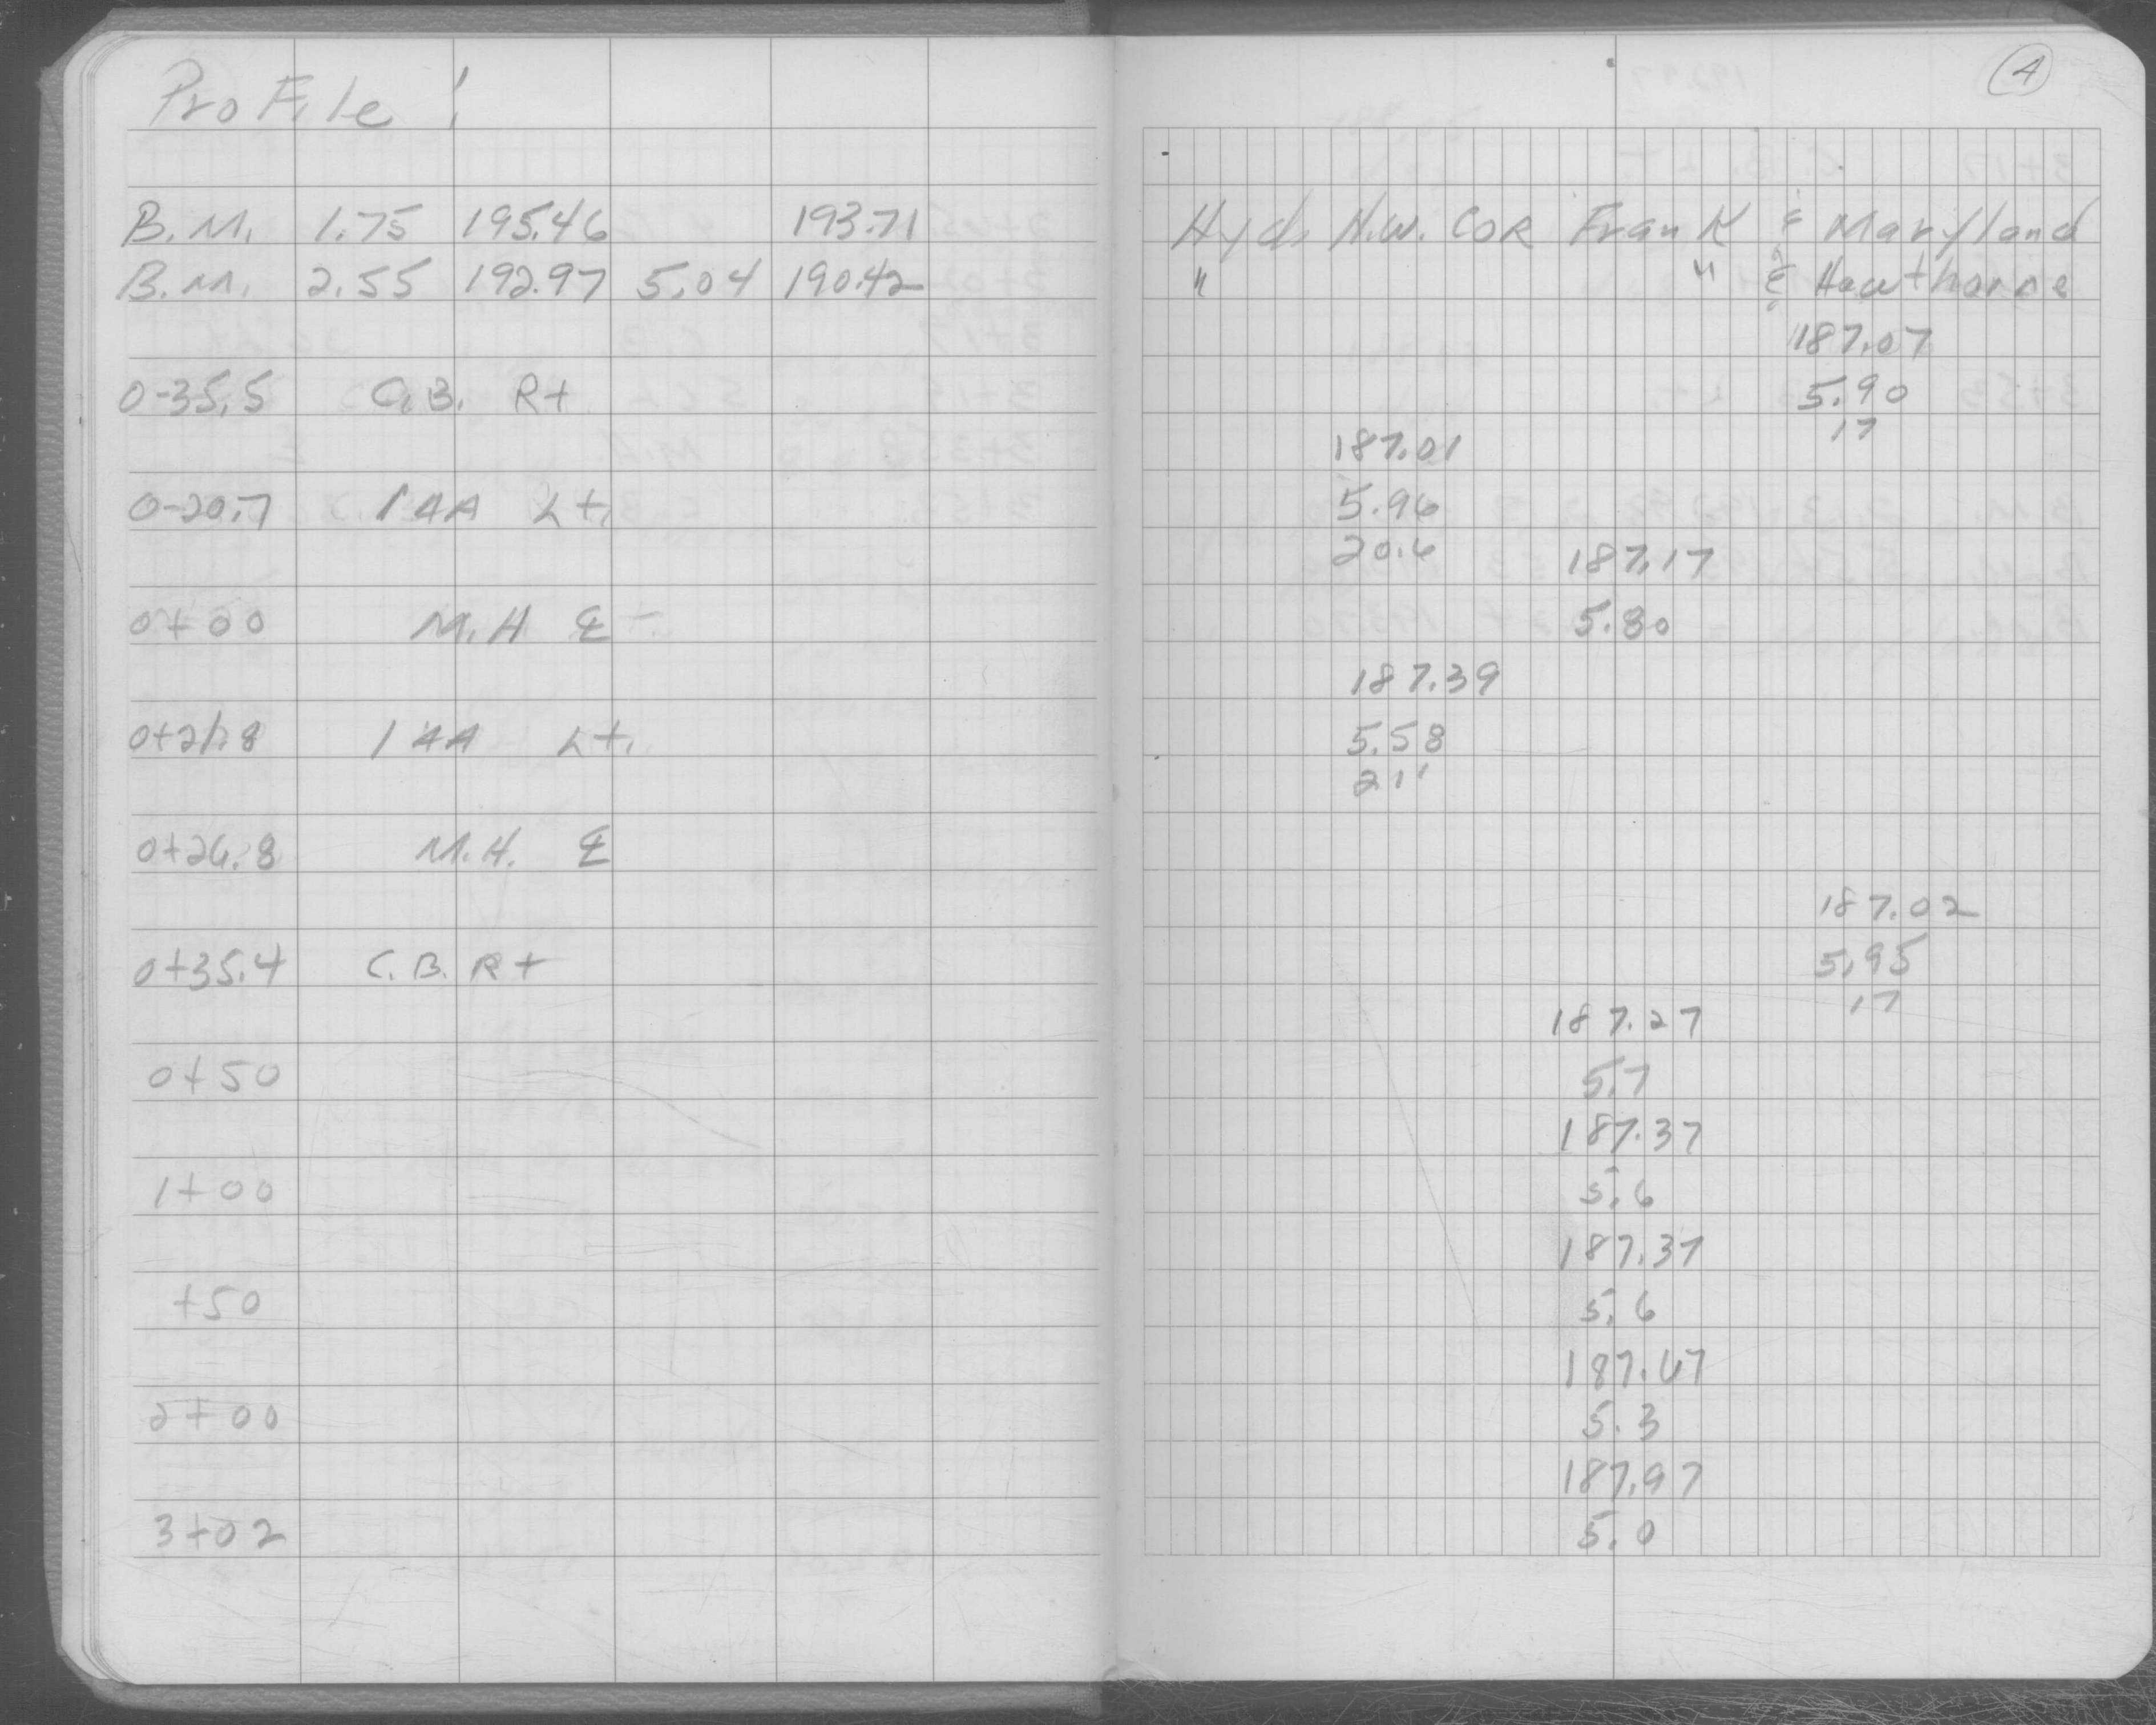 ProFile !
4
B.M. 1.75 195.46 193.71 Hyd. N.W. COR Frank & Maryland
B.M. 2.55 192.97 5.04 190.42 " " & Hawthorne
187.07
0-35.5 C.B. Rt 5.90
17
187.01
0-20.7 Lt. 5.96
20.6 187.17
0+00 M.H ℄ 5.80
187.39
0+21.8 Lt. 5.58
21'
0+26.8 M.H. ℄
187.02
0+35.4 C.B. Rt 5.95
17
187.27
0+50 5.7
187.37
1+00 5.6
187.37
+50 5.6
187.67
2+00 5.3
187.97
3+02 5.0